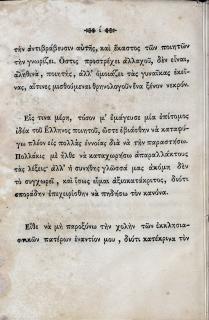 ί
τὴν ἀντιβράβευσιν αὐτῆς, καὶ ἕκαστος τῶν ποιητῶν
τὴν γνωρίζει. Ὅστις προστρέχει ἀλλαχοῦ, δὲν εἶναι,
ἀληθινὰ, ποιητής, ἀλλ' ὁμοιάζει τὰς γυναῖκας ἐκεί-
νας, αἵτινες μισθούμεναι θρηνολογοῦν ἕνα ξένον νεκρόν.
Εἰς τινα μέρη, τόσον μ' ἐμάγευσε μία ἐπίτομος
ἰδέα τοῦ Ἕλληνος ποιητοῦ, ὥστε ἐβιάσθην νὰ καταφύ-
γω πλέον εἰς πολλὰς ἐννοίας διὰ νὰ τὴν παραστήσω.
Πολλάκις μὲ ἦλθε νὰ καταχωρήσω ἀπαραλλάκτους
τὰς λέξεις· ἀλλ' ἡ συνήθης γλῶσσά μας ἀκόμη δὲν
τὸ συγχωρεῖ, καὶ ἴσως εἶμαι ἀξιοκατάκριτος, διότι
σποράδην ἐπεχειρίσθην νὰ πηδήσω τὸν κανόνα.
Εἴθε νὰ μὴ παροξύνω τὴν χολὴν τῶν ἐκκλησια-
στικῶν πατέρων ἐναντίον μου, διότι κατέκρινα τὸν